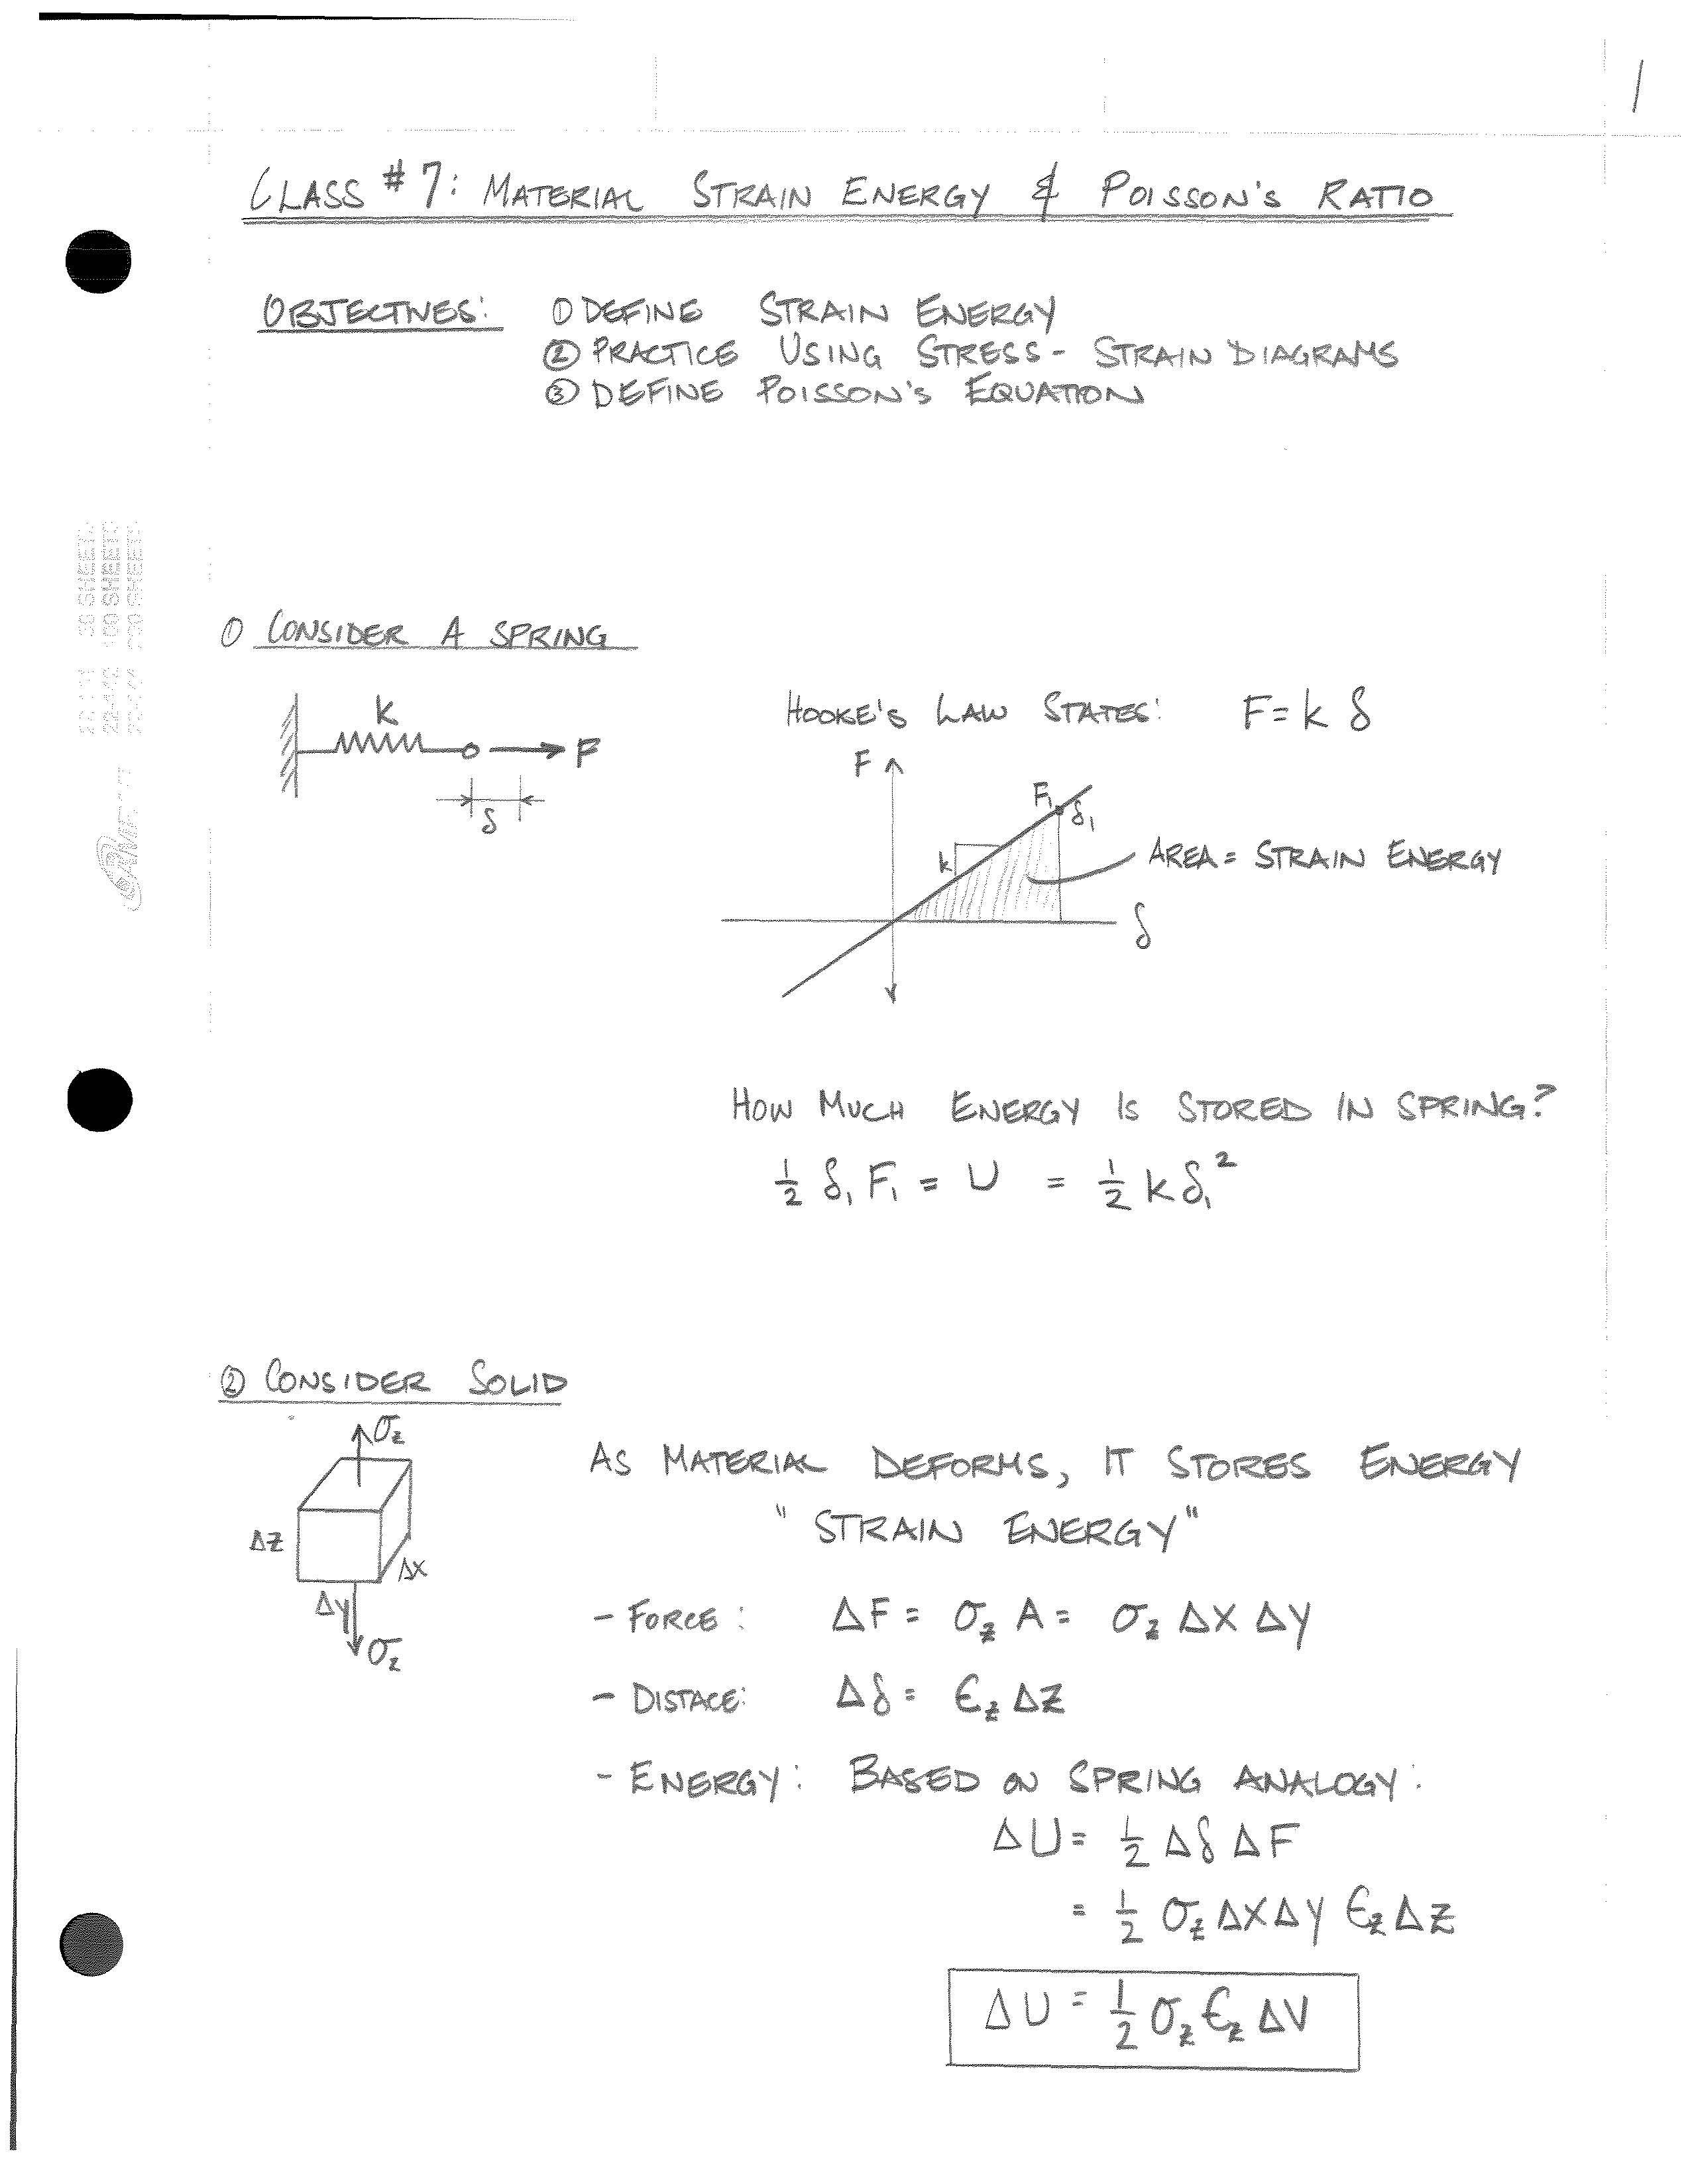 1
CLASS #7: MATERIAL STRAIN ENERGY & POISSON'S RATIO
OBJECTIVES: ① DEFINE STRAIN ENERGY
② PRACTICE USING STRESS-STRAIN DIAGRAMS
③ DEFINE POISSON'S EQUATION
50 SHEETS
100 SHEETS
200 SHEETS
① CONSIDER A SPRING
k
F
δ
HOOKE'S LAW STATES: F = k δ
F
F₁
δ₁
k
AREA = STRAIN ENERGY
δ
HOW MUCH ENERGY IS STORED IN SPRING?
½ δ₁ F₁ = U = ½ k δ₁²
② CONSIDER SOLID
σz
Δz
Δx
Δy
σz
AS MATERIAL DEFORMS, IT STORES ENERGY
"STRAIN ENERGY"
- FORCE: ΔF = σz A = σz Δx Δy
- DISTACE: Δδ = εz Δz
- ENERGY: BASED ON SPRING ANALOGY:
ΔU = ½ Δδ ΔF
= ½ σz Δx Δy εz Δz
ΔU = ½ σz εz ΔV